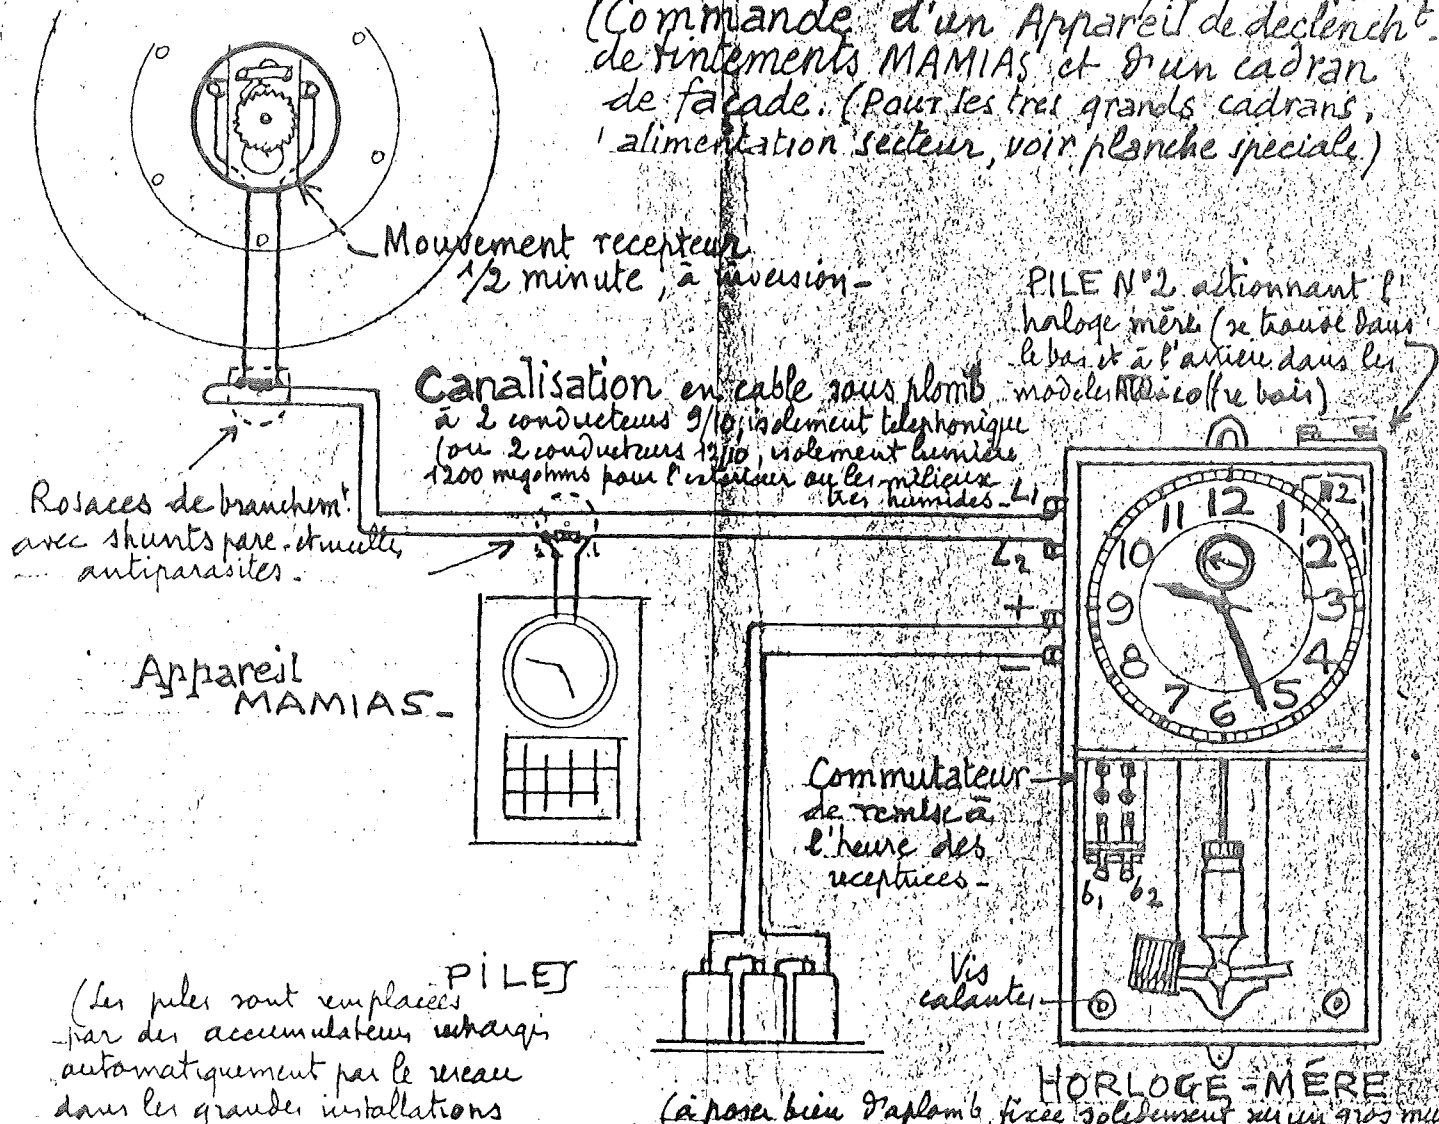 (Commande d'un Appareil de déclench^t.
de tintements MAMIAS et d'un cadran
de façade. (Pour les très grands cadrans,
alimentation secteur, voir planche spéciale)
Mouvement recepteur
1/2 minute, à inversion -
PILE N°2 actionnant l'
horloge mère (se trouve dans
le bas et à l'arrière dans les
modèles coffre bois)
Canalisation en cable sous plomb
à 2 conducteurs 9/10, isolement telephonique
(ou 2 conducteurs 12/10, isolement lumière
1200 megohms pour l'extérieur ou les milieux
très humides -
L1
L2
+
-
Rosaces de branchem^t.
avec shunts pare-étincelles
antiparasites.
Appareil
MAMIAS -
12
1
2
3
4
5
6
7
8
9
10
11
N2
Commutateur
de remise à
l'heure des
réceptrices -
b1 b2
Vis
calantes
PILES
(Les piles sont remplacées
par des accumulateurs rechargés
automatiquement par le reseau
dans les grandes installations
HORLOGE-MÈRE
(à poser bien d'aplomb, fixée solidement sur un gros mu